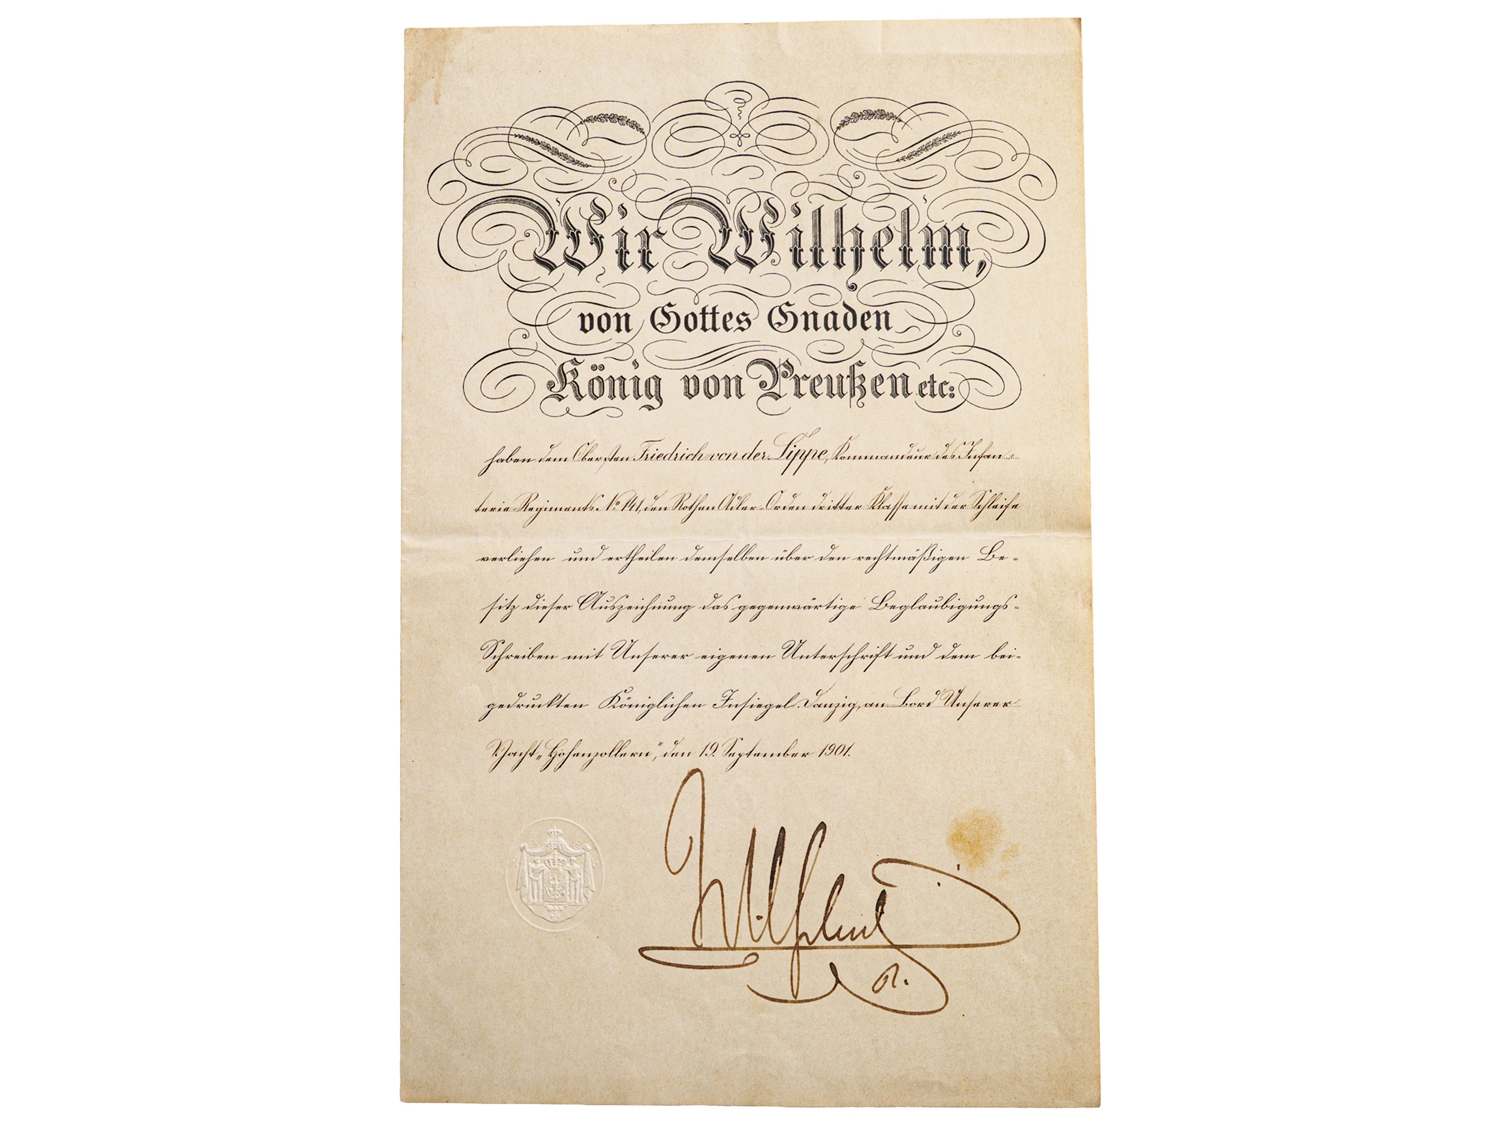 Wir Wilhelm,
von Gottes Gnaden
König von Preußen etc:
haben dem Obersten Friedrich von der Lippe, Kommandeur des Infan-
terie Regiments No 141, den Rothen Adler-Orden dritter Klasse mit der Schleife
verliehen und ertheilen demselben über den rechtmäßigen Be-
sitz dieser Auszeichnung das gegenwärtige Beglaubigungs-
Schreiben mit Unserer eigenen Unterschrift und dem bei-
gedruckten Königlichen Insiegel. Danzig, an Bord Unserer
Yacht „Hohenzollern", den 19. September 1901.
Wilhelm
R.